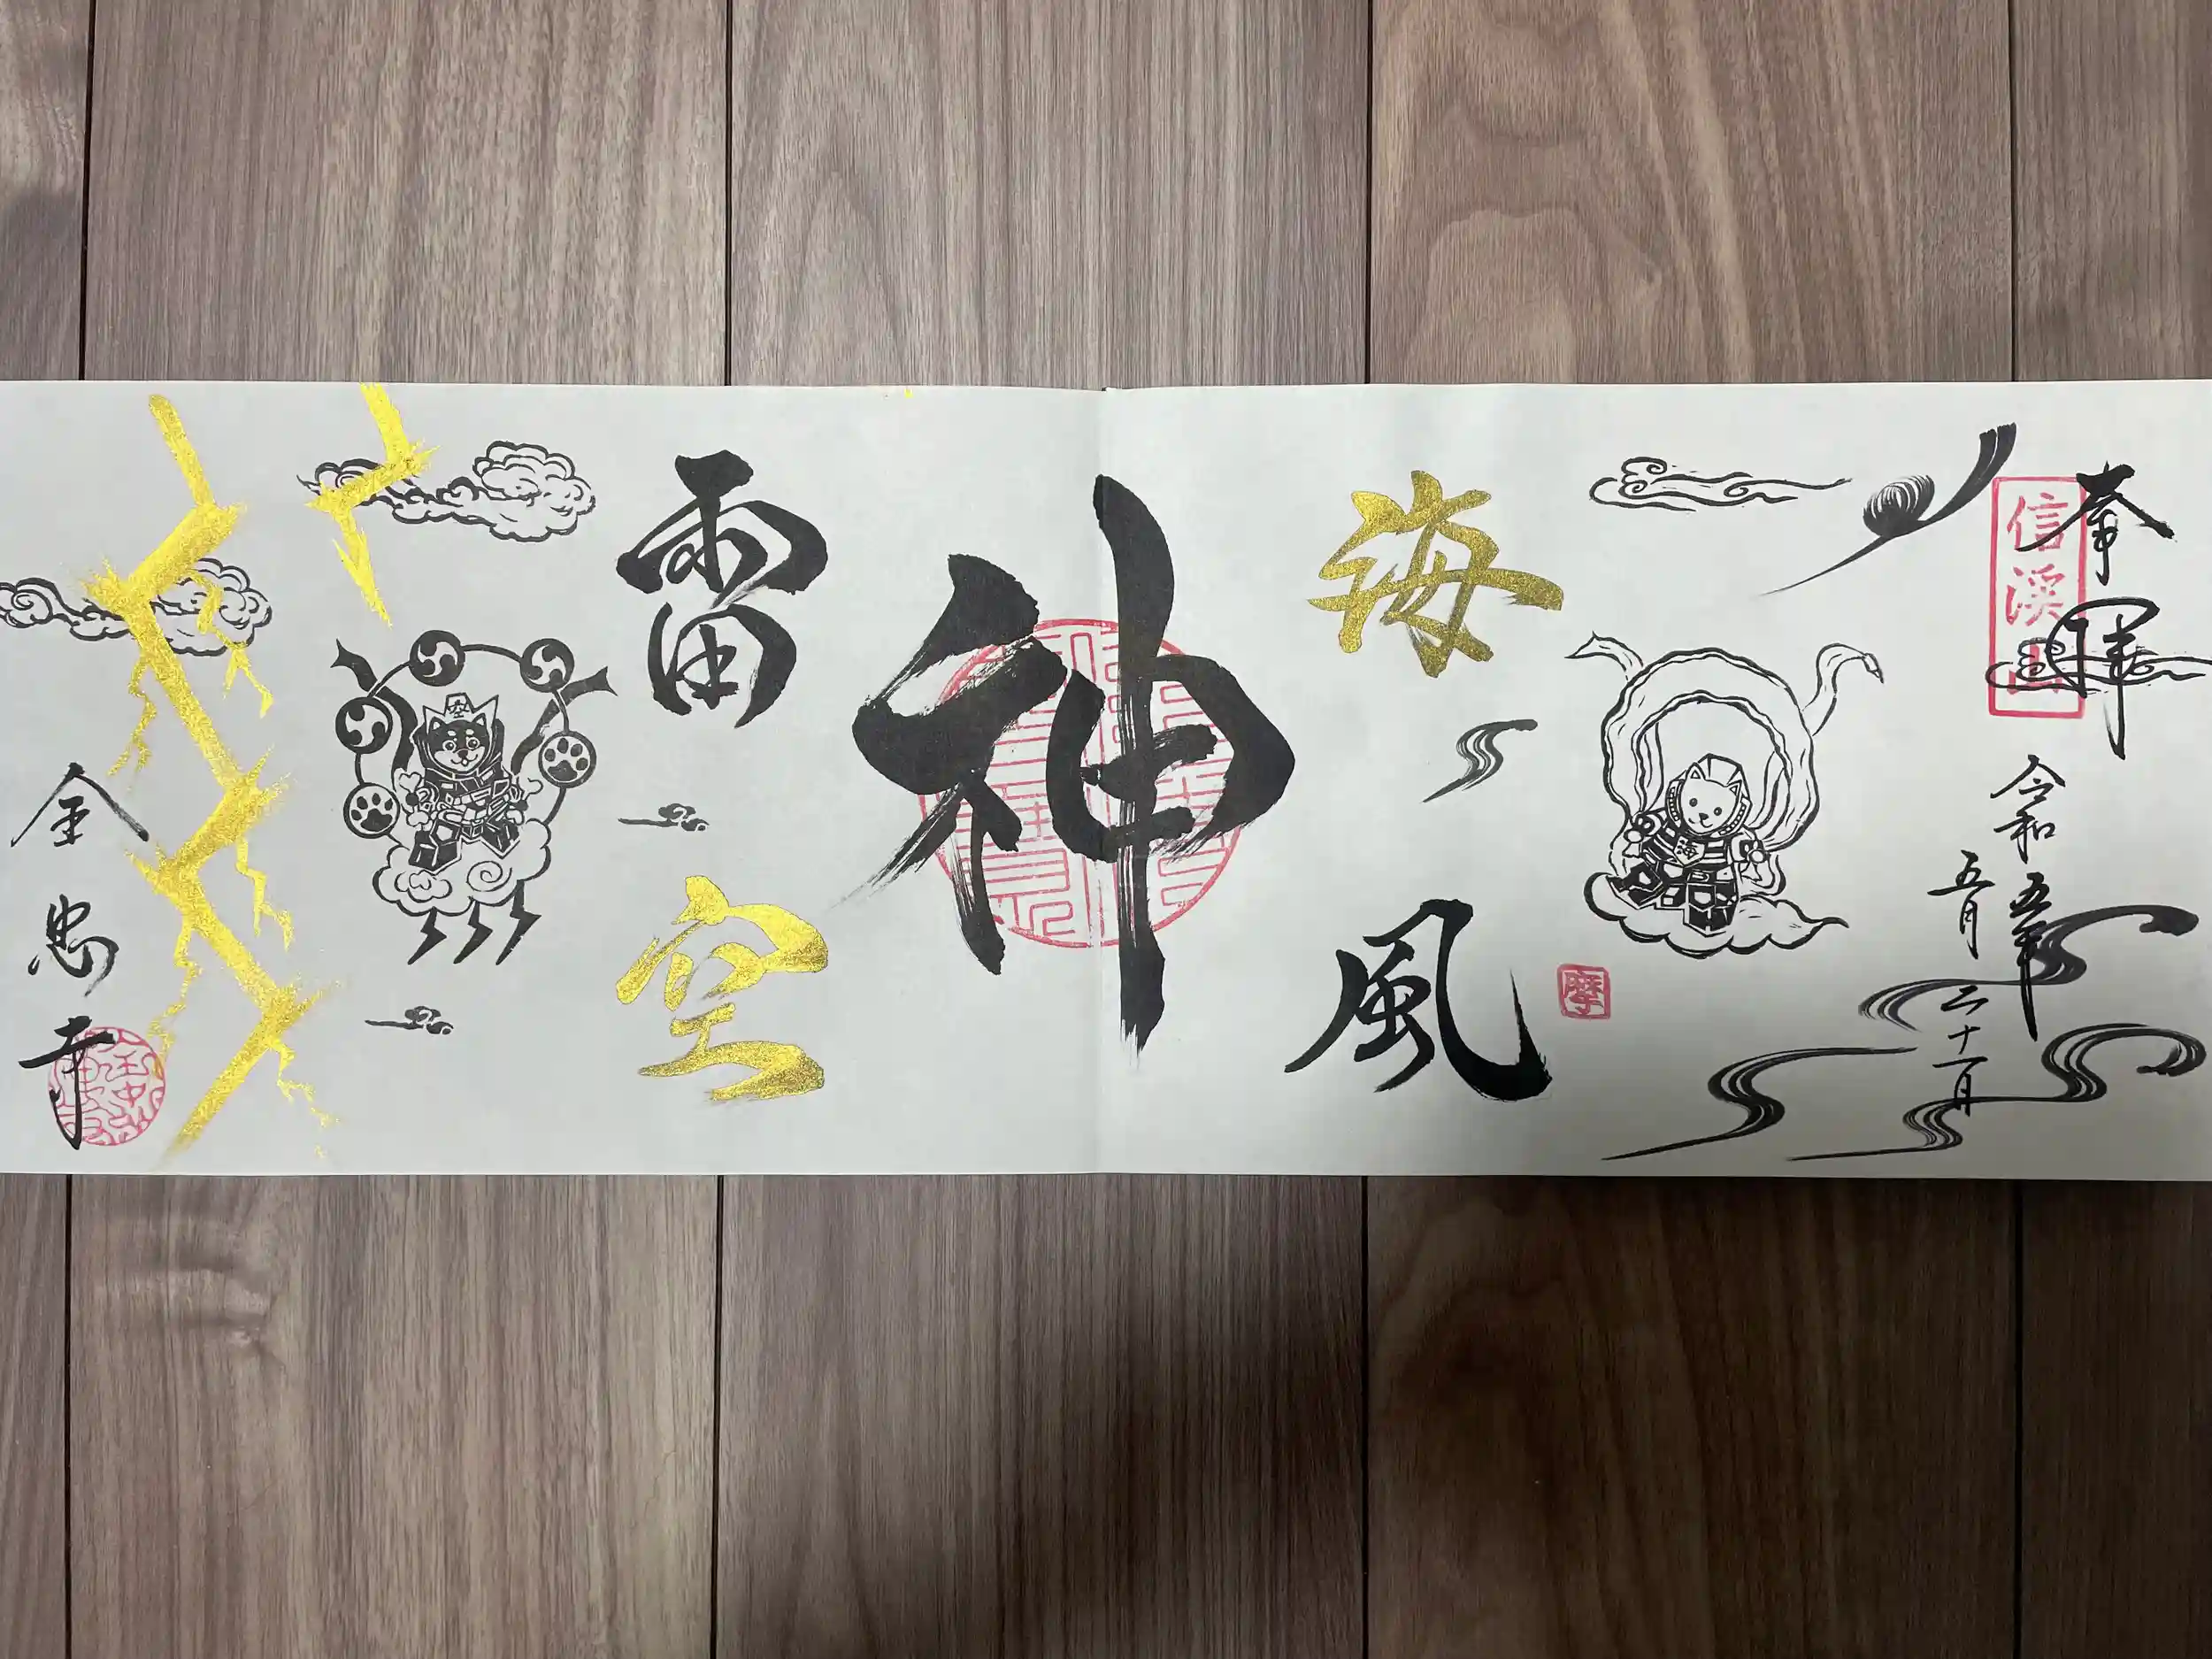 奉拝
信渓山
令和五年
五月二十一日
海
摩
海
風
神
雷
空
空
全忠寺